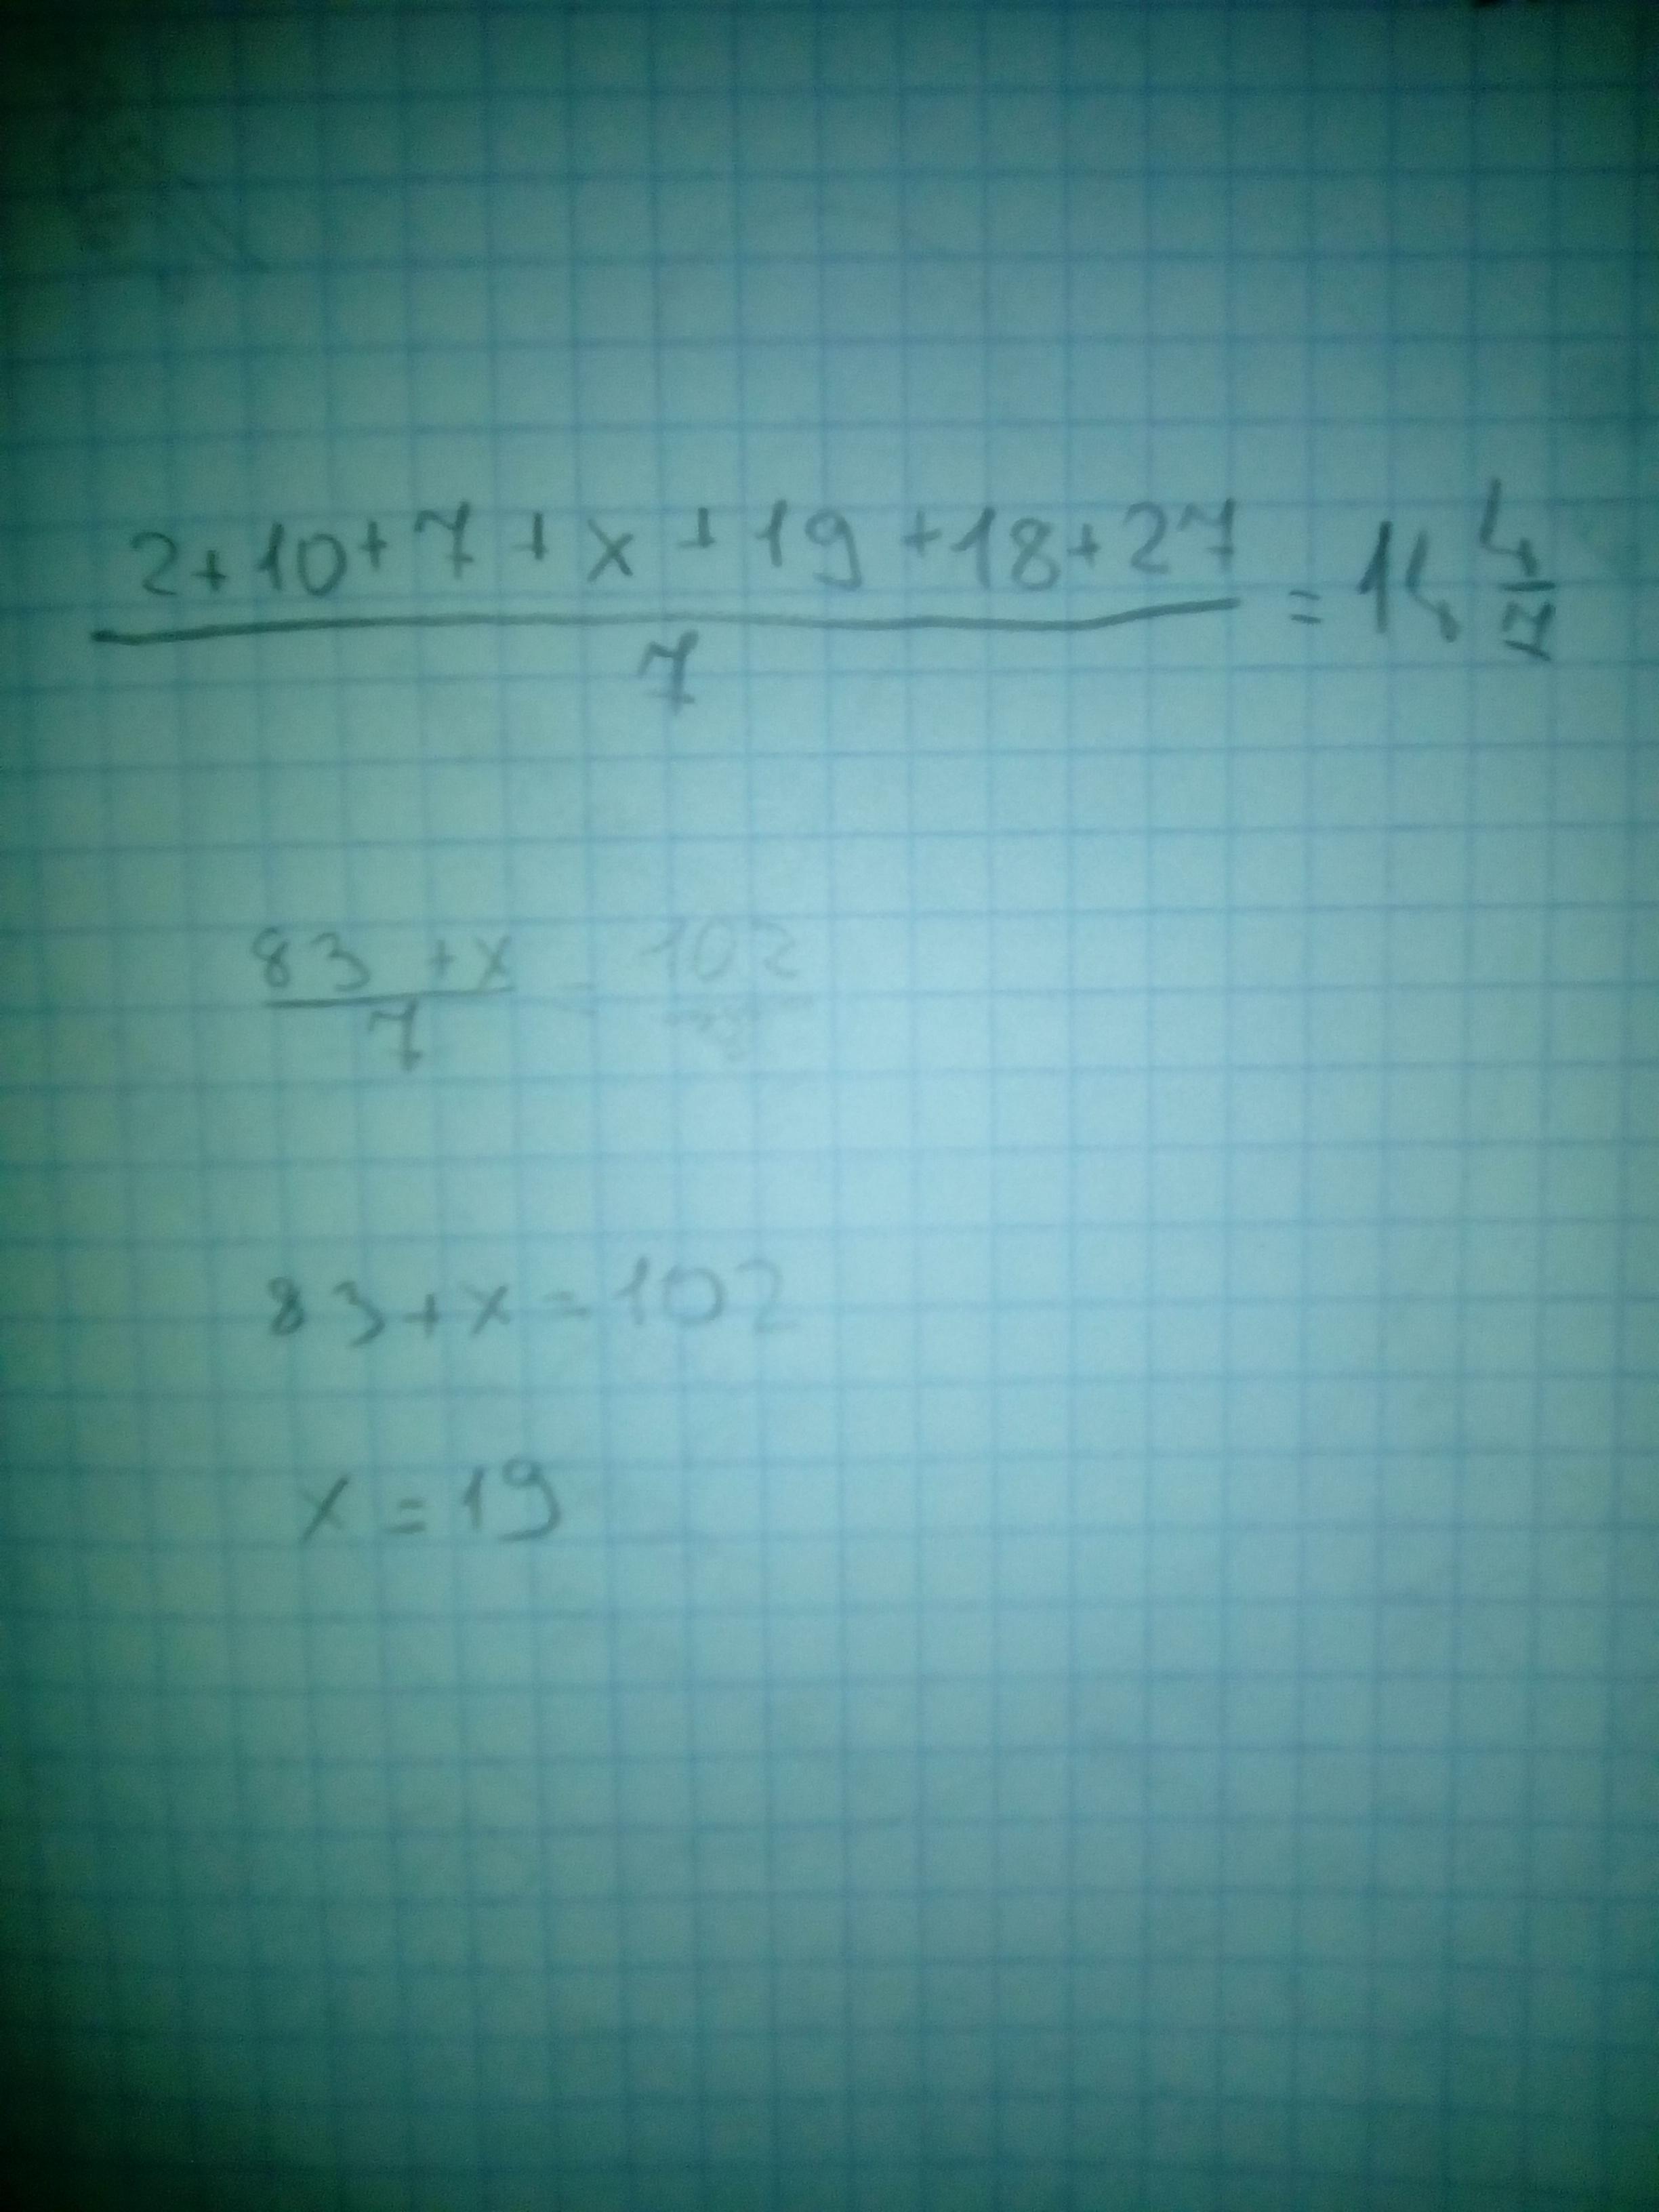 2+10+7+x+19+18+27
—————————————— = 14 4/7
7
83+x/7 = 102/
83+x=102
x=19